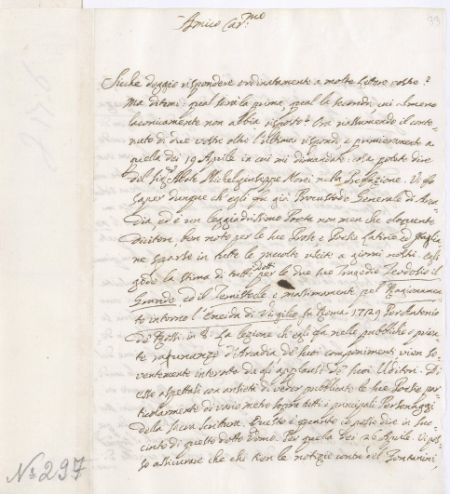 33
Amico Car.mo
Anche deggio rispondere ordinatamente a molte lettere vostre?
Ma ditemi: qual sarà la prima, qual la seconda, cui almeno
laconicamente non abbia risposto? Ora riassumendo il conte-
nuto di due vostre oltre l'ultima rispondo, e primieramente a
quella dei 19 Aprile in cui mi dimandate cosa potete dire
del Sig.r Ab. Michelgiuseppe Morei nella Prefazione. Vi fo
saper dunque ch'egli ora già Procustode Generale di Arca-
dia, ed è un leggiadrissimo Poeta non men che eloquente
Dicitore, ben noto per le sue Prose e Poesie Latine ed Italia-
ne sparse in tutte le raccolte uscite a giorni nostri,
la stima di tutti i Dotti per le due sue Tragedie Teodosio il
Grande, ed il Temistocle e massimamente pel Ragionamen-
to intorno l'Eneida di Virgilio in Roma 1729 Per Antonio
de Rossi in 8. La lezione ch'egli fa nelle pubbliche e priva-
te radunanze d'Arcadia de' suoi componimenti vien so-
ventemente interrotta da gli applausi de' suoi Uditori. Di
esso aspettasi con ansietà di veder pubblicate le sue Poesie par-
ticolarmente di vario metro sopra tutti i principali Personaggi
della Sacra Scrittura. Questo è quanto io posso dire in suc-
cinto di questo dotto Uomo. Per quella dei 26 Aprile. Vi pos-
so assicurare che le notizie contro del Fontanini,
N.o 297